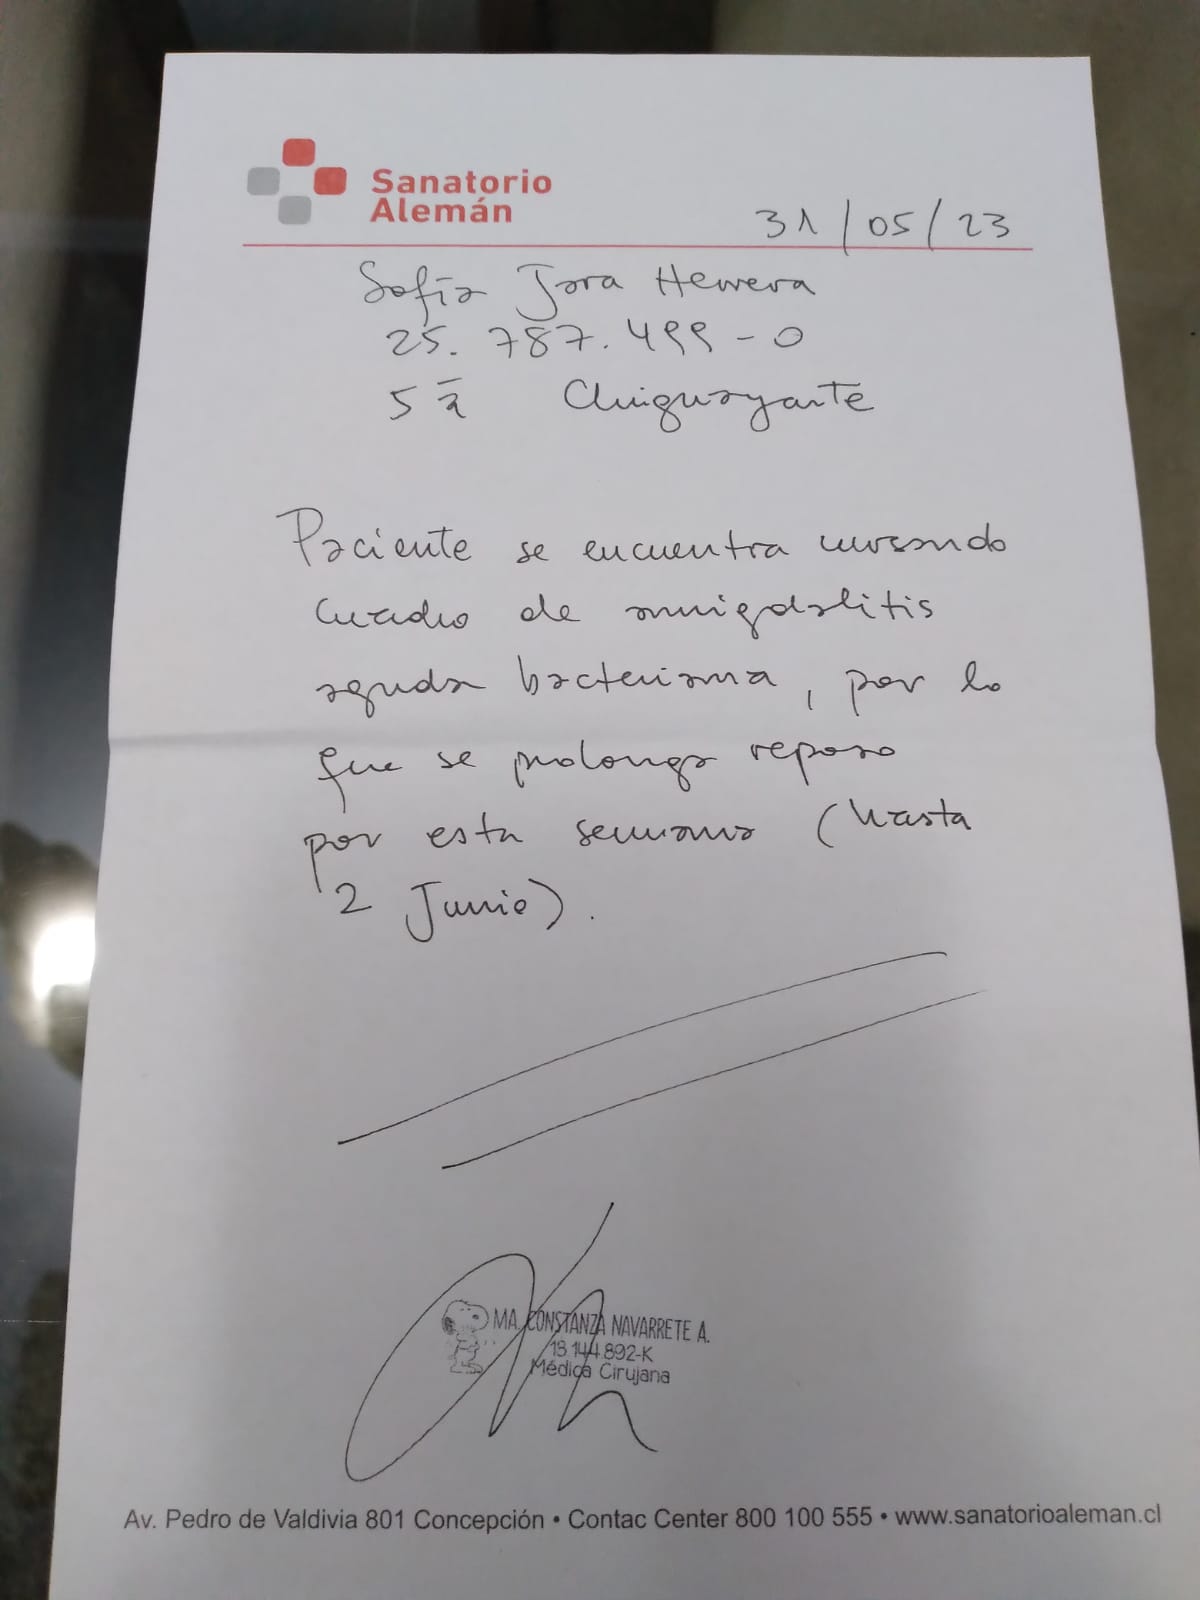 Sanatorio
Alemán
31/05/23
Sofía Jara Herrera
25.787.499-0
5 a Chiguayante
Paciente se encuentra cursando
cuadro de amigdalitis
aguda bacteriana, por lo
que se prolonga reposo
por esta semana (hasta
2 Junio).
MA. CONSTANZA NAVARRETE A.
18.144.892-K
Médica Cirujana
Av. Pedro de Valdivia 801 Concepción • Contac Center 800 100 555 • www.sanatorioaleman.cl